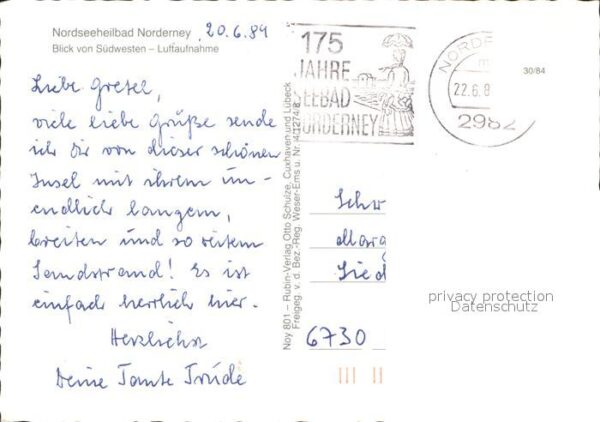 Nordseeheilbad Norderney 20.6.89
Blick von Südwesten – Luftaufnahme
Liebe Gretel,
viele liebe Grüße sende
ich Dir von dieser schönen
Insel mit ihrem un-
endlich langem,
breiten und so weitem
Sandstrand! Es ist
einfach herrlich hier.
Herzlichst
Deine Tante Trude
Noy 801 – Rubin-Verlag Otto Schulze, Cuxhaven und Lübeck
Freigeg. v. d. Bez.-Reg. Weser-Ems u. Nr. 4/1274/8
175
JAHRE
SEEBAD
NORDERNEY
NORD
22.6.8
2982
30/84
Schw
Marg
Sied
6730
privacy protection
Datenschutz